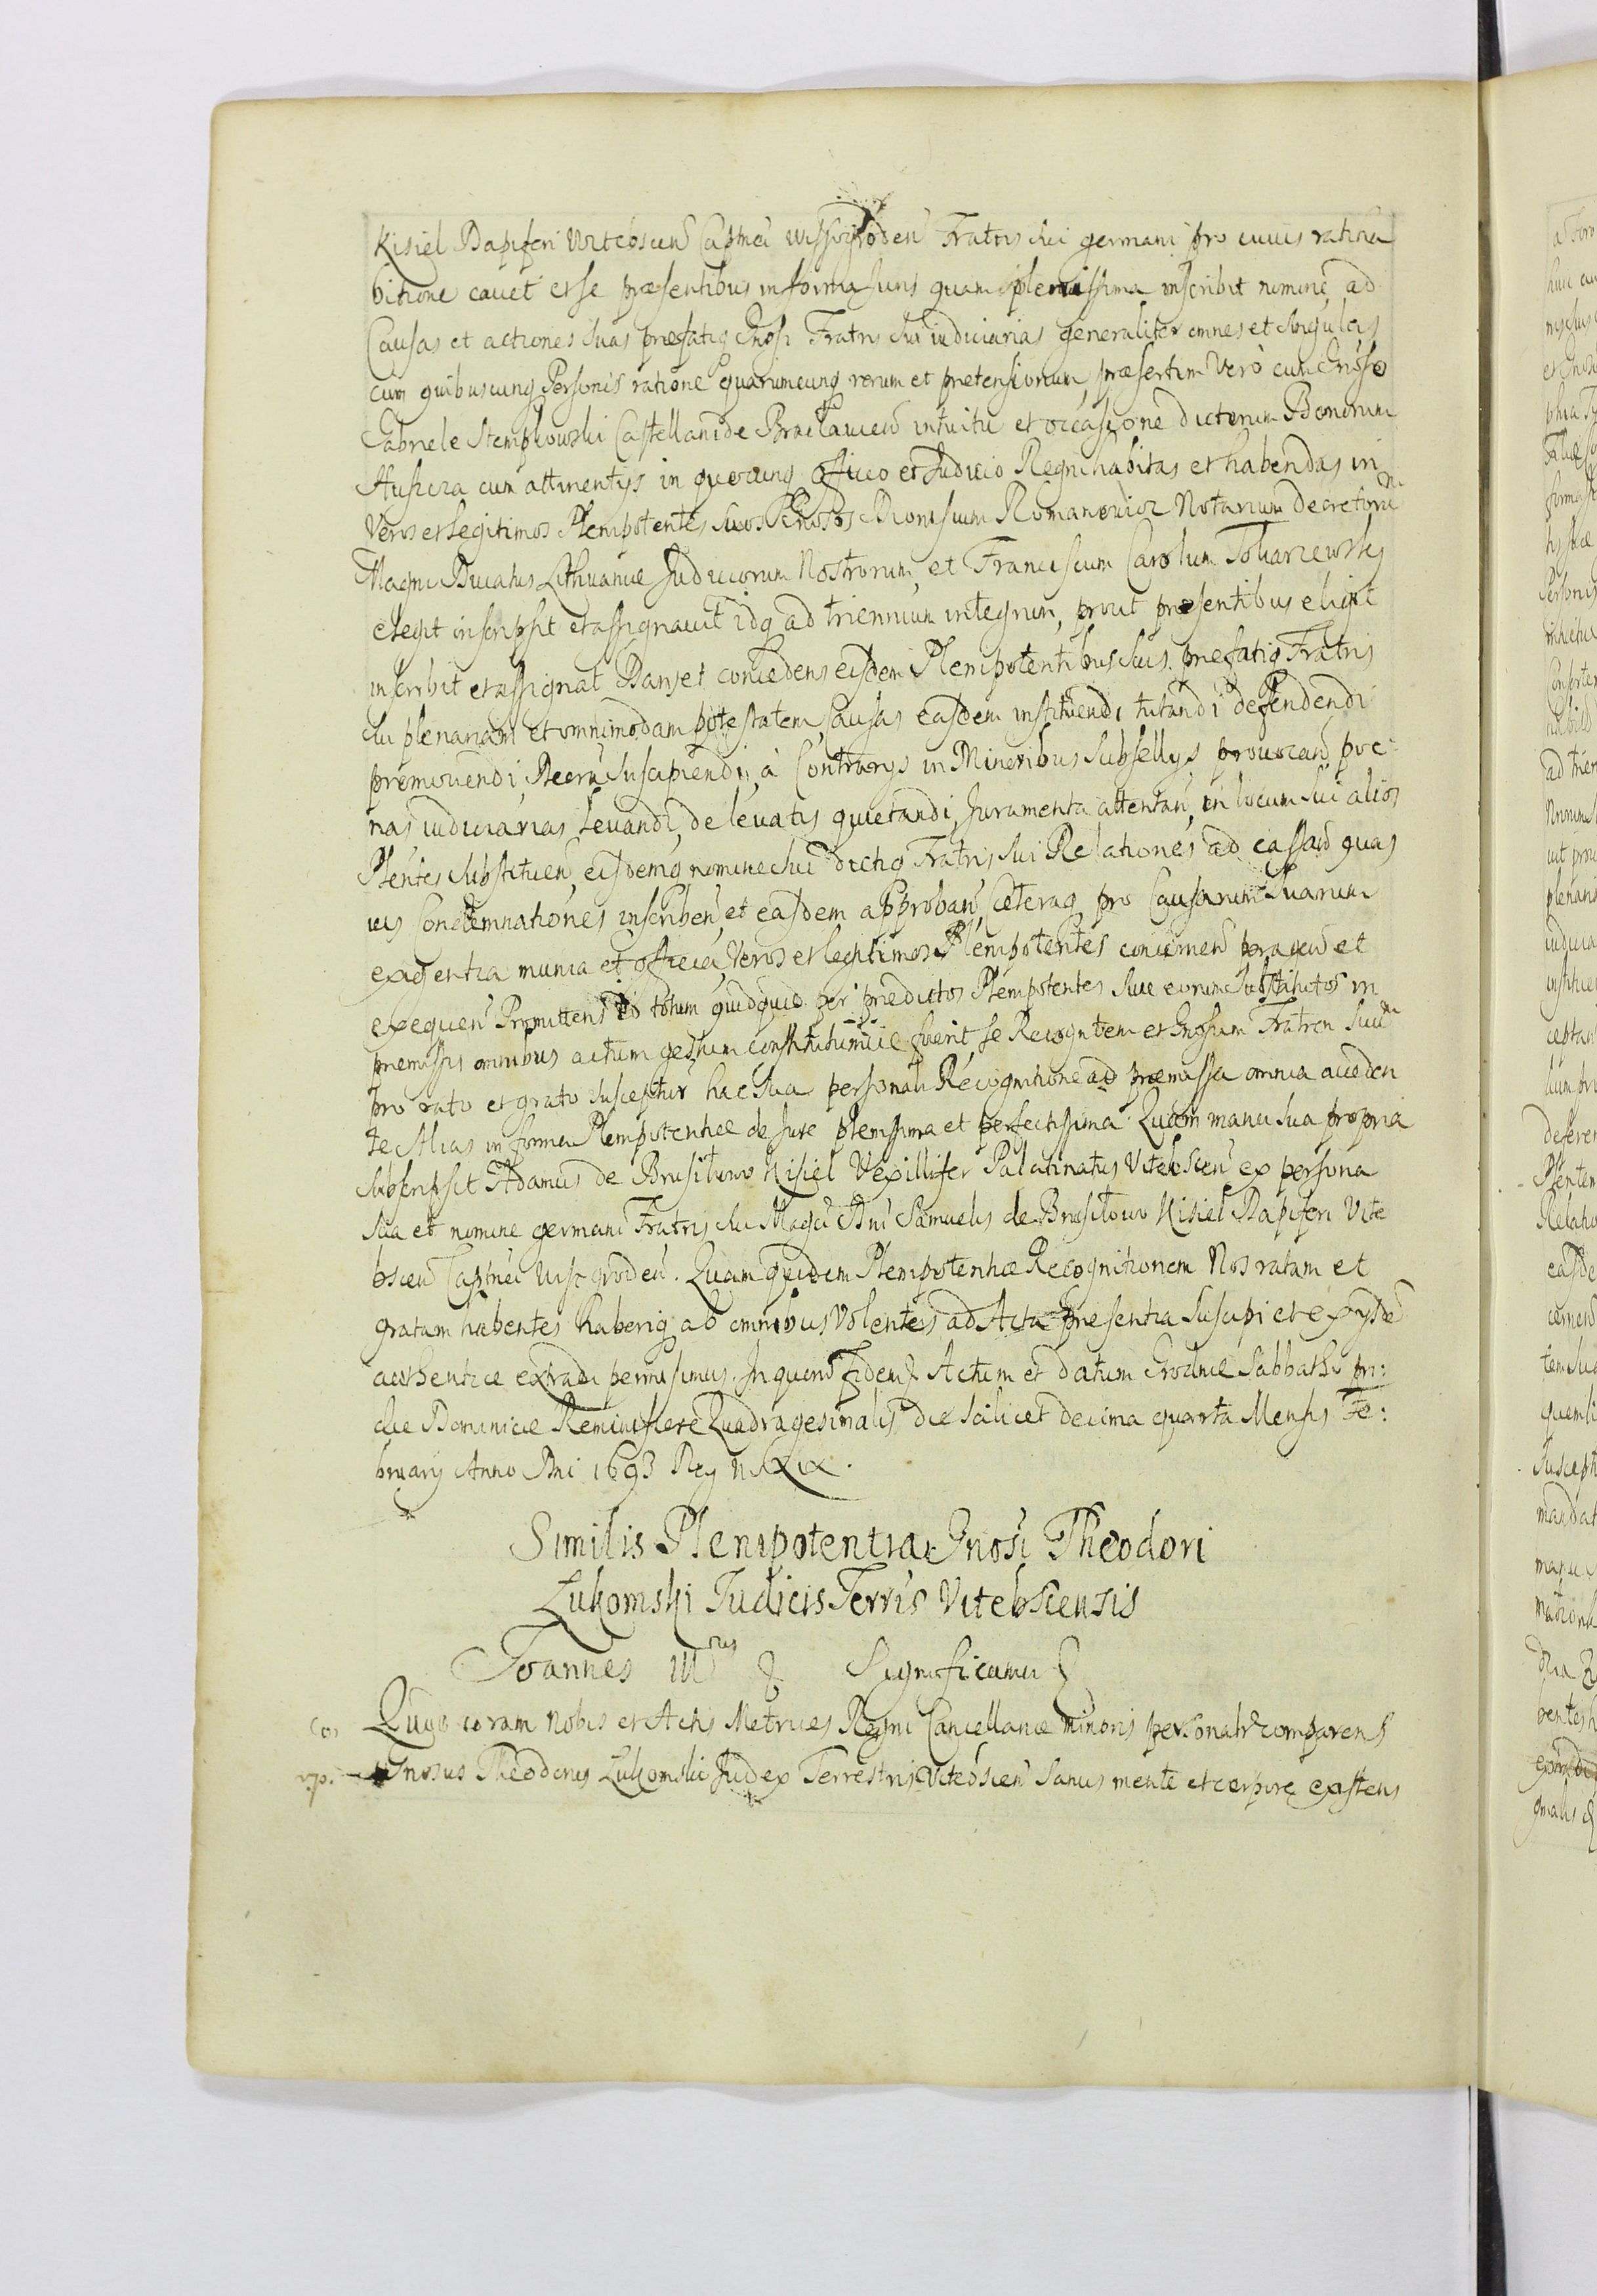 Kisiel Dapiferi Vitebscen Captnei Wissogroden Fratris sui germani pro cuius ratiha
bitione cavet et se præsentibus in forma Iuris quam plenissima inscribit nomine, ad
Causas et actiones suas præfatiq Gnosi Fratris sui iudiciarias generaliter omnes et singulas
cum quibuscunq Personis ratione quarumcunq rerum et pretensionum, præsertim Vero cum Gnoso
Gabriele Stempkowski Castellanide Braclavien intuitu et occasione dictorum Bonorum
cum attinentys in quocunq Officio et Iudicio Regni habitas et habendas in
Veros et legitimos Plenipotentes suos Gnosos Dionisium Romanowicz Notarium Decretorum
Magni Ducatus Lithuaniæ Iudiciorum Nostrorum, et Franciscum Carolum
elegit inscripsit et assignavit idq ad triennium integrum, prout præsentibus eligit
inscribit et assignat Dans et concedens eisdem Plenipotentibus suis præfatiq Fratris
sui plenariam et omnimodam potestatem, Causas easdem instituendi tutandi defendendi
promovendi, suscipiendi, à Contrarys in Minoribus Subsellys provocand poe:
nas iudiciarias levandi, de levatis quietandi, Iuramenta attentan, in locum sui alios
Plentes substituen, eisdemq nomine sui dictiq Fratris sui Relationes ad cassand quas
vis Condemnationes inscriben, et easdem approban, Cæteraq pro Causarum suarum
exigentia munia et officia, Veros et legitimos Plenipotentes concernen peragen et
exequen Promittens Id totum quidquid per prædictos Plenipotentes sive eorum Substitutos in
premissis omnibus actum gestum constitutumve fuerit se Recogntem et Gnosum Fratrem suum
pro rato et grato suscepturum hac sua personali Recognitione ad præmissa omnia acceden
te Alias in forma Plenipotentiæ de Iure plenissima et perfectissima. Quam manu sua propria
subscripsit Adamus de Brusilow Kisiel Vexillifer Palatinatus Vitebscen ex persona
sua et nomine germani Fratris sui Magci Dni Samuelis de Brusilow Kisiel Dapiferi Vite
bscen Captnei Wisogroden. Quam quidem Plenipotentiæ Recognitionem Nos ratam et
gratam habentes haberiq ab omnibus Volentes ad Acta præsentia suscipi et ex ysdem
authentice extradi permisimus. In quorum fidem & Actum et datum Grodnæ Sabbatho pri:
die Dominicæ Reminiscere Quadragesimalis die scilicet decima quarta Mensis Fe:
bruary Anno Dni 1693 Reg n XIX.
Similis Plenipotentia Gnosi Theodori
Łukomski Iudicis Terris Vitebscensis
Joannes IIIrtius & Significamus &
Quia coram Nobis et Actis Metrices Regni Cancellariæ minoris personaltr comparens
Gnosus Theodorus Łukomski Iudex Terrestris Vitebscen sanus mente et corpore existens